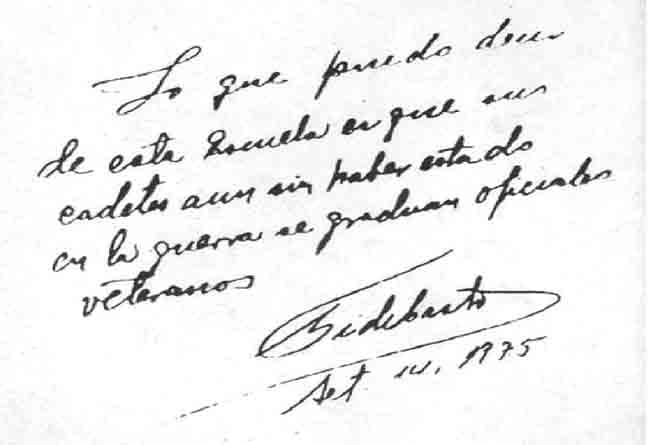 Lo que puedo decir
de esta Escuela es que sus
cadetes aun sin haber estado
en la guerra se graduan oficiales
veteranos
Fidel Castro
Set 1975